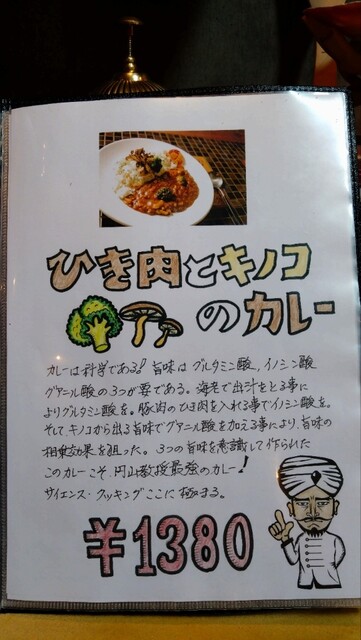 ひき肉とキノコ
のカレー
カレーは科学である! 旨味はグルタミン酸, イノシン酸
グアニル酸の3つが要である。海老で出汁をとる事に
よりグルタミン酸を。豚肉のひき肉を入れる事でイノシン酸を。
そしてキノコから出る旨味でグアニル酸を加える事により、旨味の
相乗効果を狙った。3つの旨味を意識して作られた
このカレーこそ、円山教授最強のカレー!
サイエンス・クッキングここに極まる。
¥1380